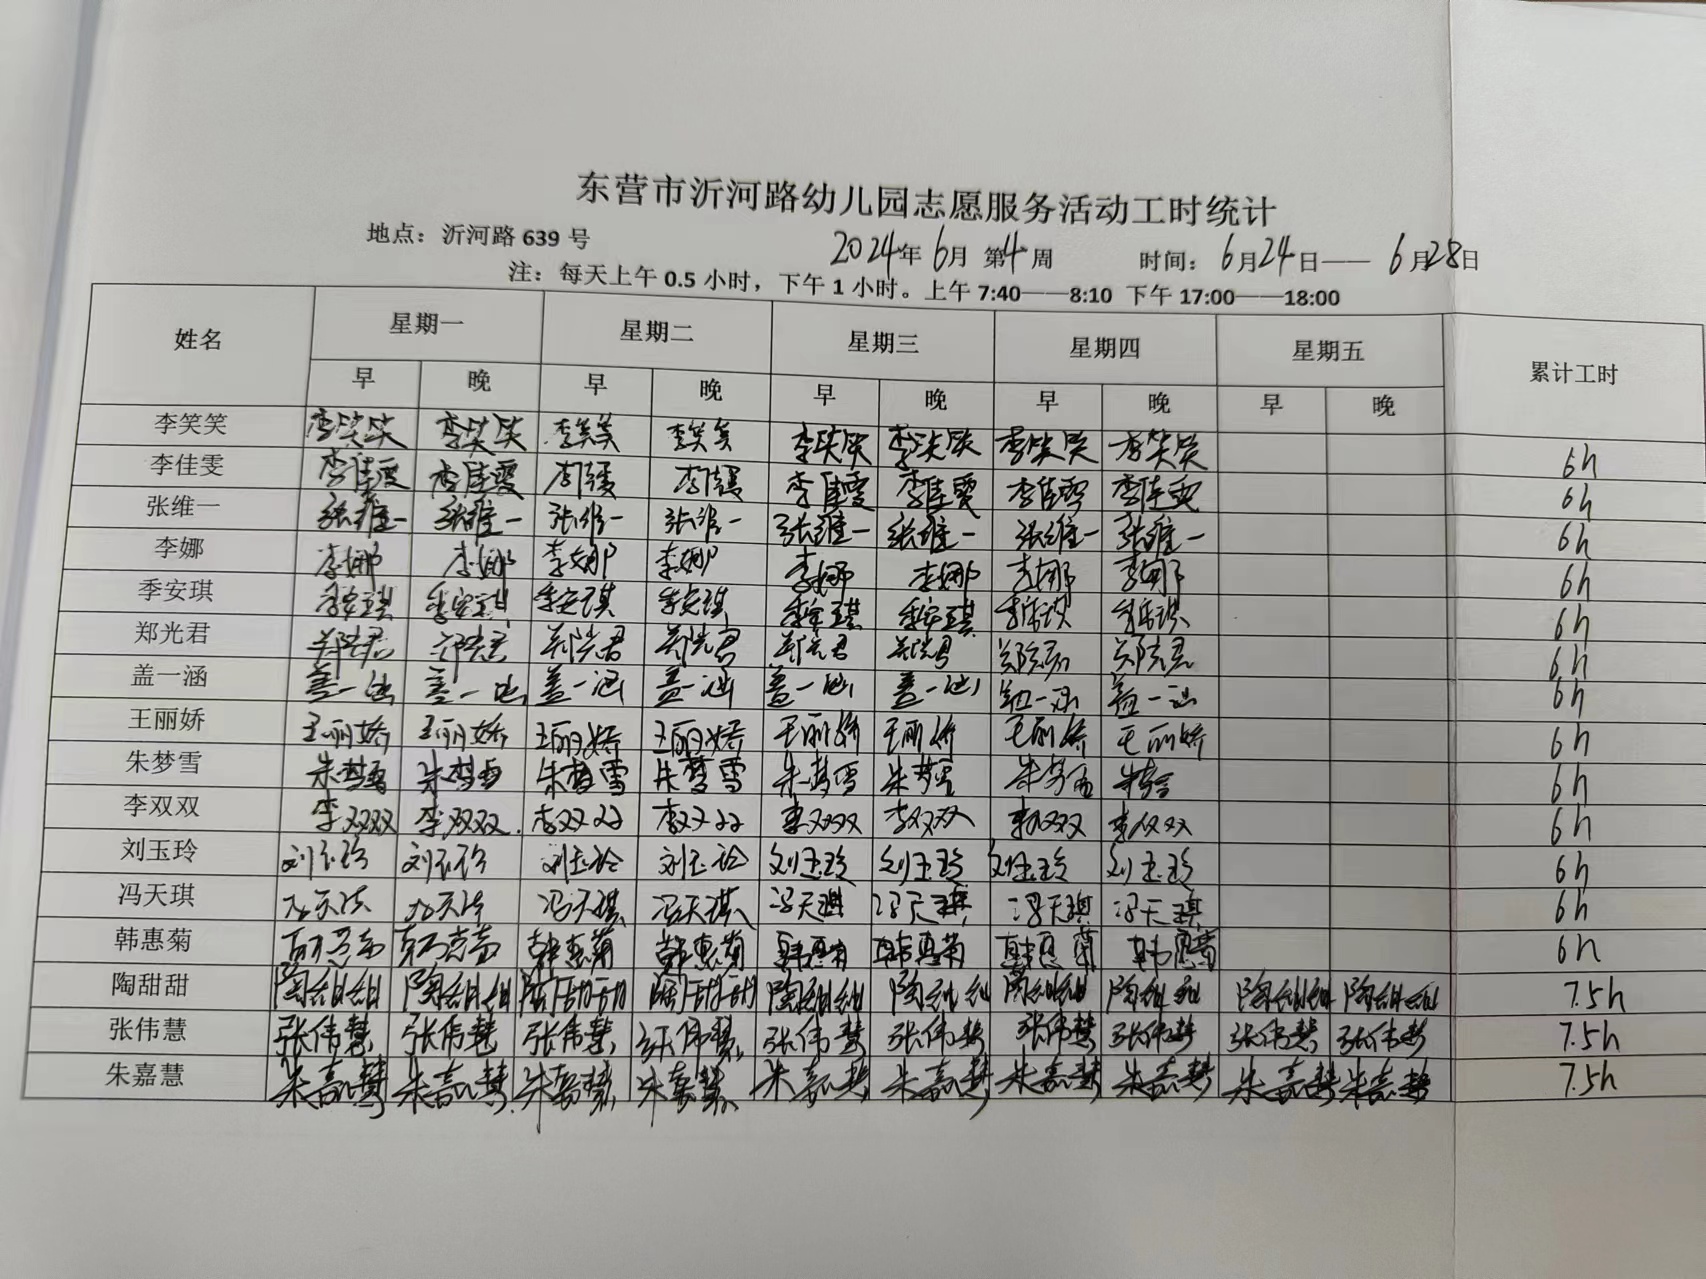 东营市沂河路幼儿园志愿服务活动工时统计
地点：沂河路 639 号 2024年 6月 第4周 时间：6月24日—— 6月28日
注：每天上午 0.5 小时，下午 1 小时。上午 7:40——8:10 下午 17:00——18:00
姓名 星期一 星期二 星期三 星期四 星期五 累计工时
早 晚 早 晚 早 晚 早 晚 早 晚
李笑笑 李笑笑 李笑笑 李笑笑 李笑笑 李笑笑 李笑笑 李笑笑 李笑笑 6h
李佳雯 李佳雯 李佳雯 李佳雯 李佳雯 李佳雯 李佳雯 李佳雯 李佳雯 6h
张维一 张维一 张维一 张维一 张维一 张维一 张维一 张维一 张维一 6h
李娜 李娜 李娜 李娜 李娜 李娜 李娜 李娜 李娜 6h
季安琪 季安琪 季安琪 季安琪 季安琪 季安琪 季安琪 季安琪 季安琪 6h
郑光君 郑光君 郑光君 郑光君 郑光君 郑光君 郑光君 郑光君 郑光君 6h
盖一涵 盖一涵 盖一涵 盖一涵 盖一涵 盖一涵 盖一涵 盖一涵 盖一涵 6h
王丽娇 王丽娇 王丽娇 王丽娇 王丽娇 王丽娇 王丽娇 王丽娇 王丽娇 6h
朱梦雪 朱梦雪 朱梦雪 朱梦雪 朱梦雪 朱梦雪 朱梦雪 朱梦雪 朱梦雪 6h
李双双 李双双 李双双 李双双 李双双 李双双 李双双 李双双 李双双 6h
刘玉玲 刘玉玲 刘玉玲 刘玉玲 刘玉玲 刘玉玲 刘玉玲 刘玉玲 刘玉玲 6h
冯天琪 冯天琪 冯天琪 冯天琪 冯天琪 冯天琪 冯天琪 6h
韩惠菊 韩惠菊 韩惠菊 韩惠菊 韩惠菊 韩惠菊 韩惠菊 6h
陶甜甜 陶甜甜 陶甜甜 陶甜甜 陶甜甜 陶甜甜 陶甜甜 陶甜甜 陶甜甜 陶甜甜 陶甜甜 7.5h
张伟慧 张伟慧 张伟慧 张伟慧 张伟慧 张伟慧 张伟慧 张伟慧 张伟慧 张伟慧 张伟慧 7.5h
朱嘉慧 朱嘉慧 朱嘉慧 朱嘉慧 朱嘉慧 朱嘉慧 朱嘉慧 朱嘉慧 朱嘉慧 朱嘉慧 朱嘉慧 7.5h